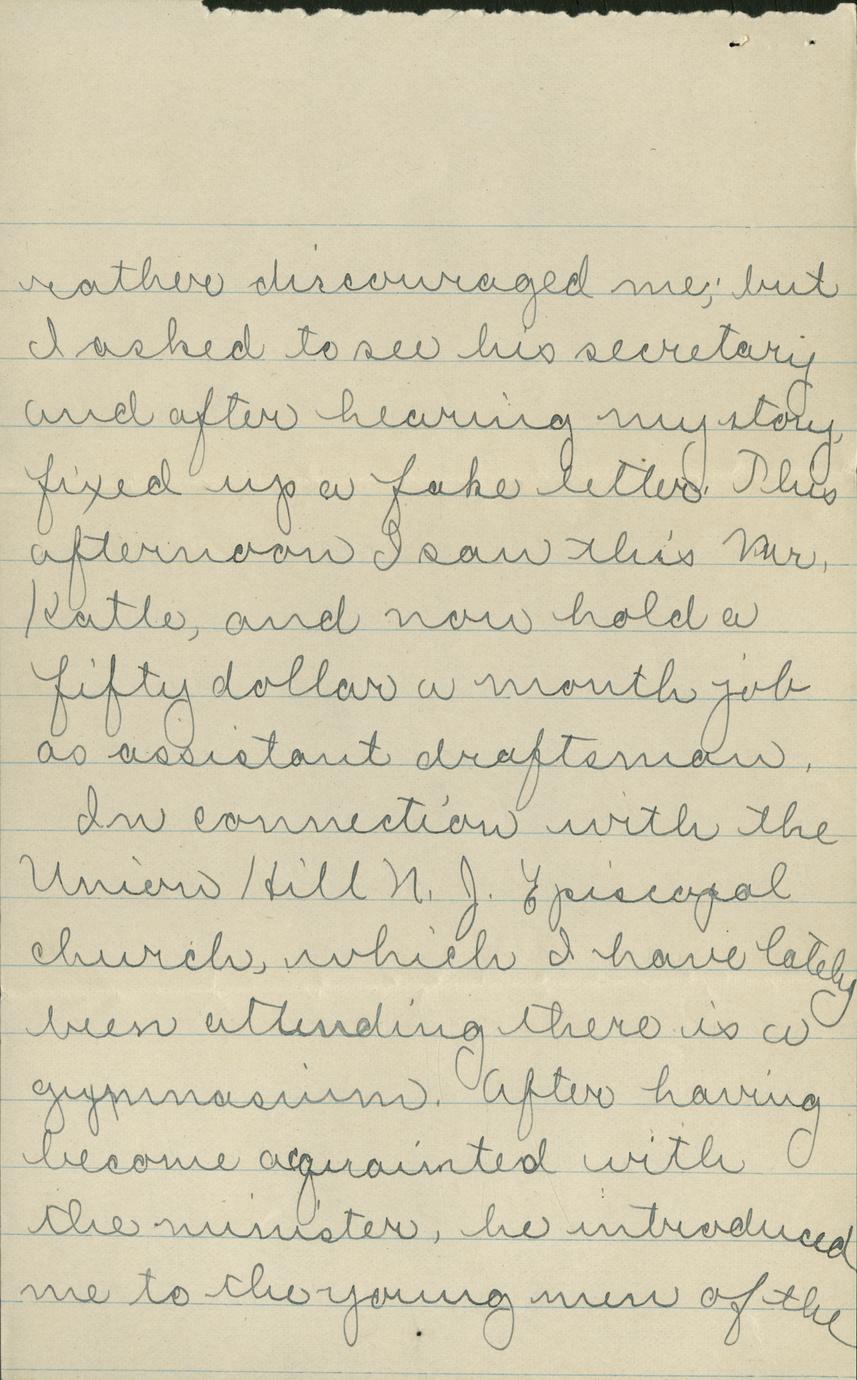 rather discouraged me; but
I asked to see his secretary
and after hearing my story,
fixed up a fake letter. This
afternoon I saw this Mr.
Katle, and now hold a
fifty dollar a month job
as assistant draftsman.
In connection with the
Union Hill N. J. Episcopal
church, which I have lately
been attending there is a
gymnasium. After having
become acquainted with
the minister, he introduced
me to the young men of the